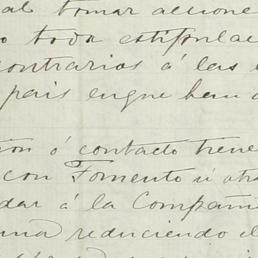 al tomar accione
o toda estipulac
contrarios á las l
pais en que han d
ión ó contacto tiene
con Fomento ú otra
dar á la Compani
una reduciendo el